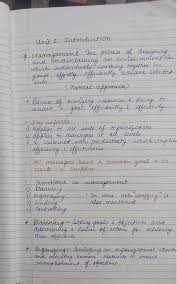 Unit 1 Introduction
* Management: The process of designing
and maintaining an environment in
which individuals working together in
groups, efficiently achieve selected
aims
(Formal approach)
* Process of utilizing resources & things to
achieve a goal efficiently & effectively
* Key aspects
1) Applies to all sorts of organisation
2) Applies to managers at all levels
3) Is concerned with productivity which implies
efficiency & effectiveness
All managers have a common goal → to
create a surplus
* Functions in management
1) Planning
2) Organizing
3) Leading
4) Controlling
* Planning - Setting goals & objectives and
determining a course of action for achieving
those objectives
* Organizing - Developing an organisational structure
and allocating human resources to ensure
accomplishment of objectives